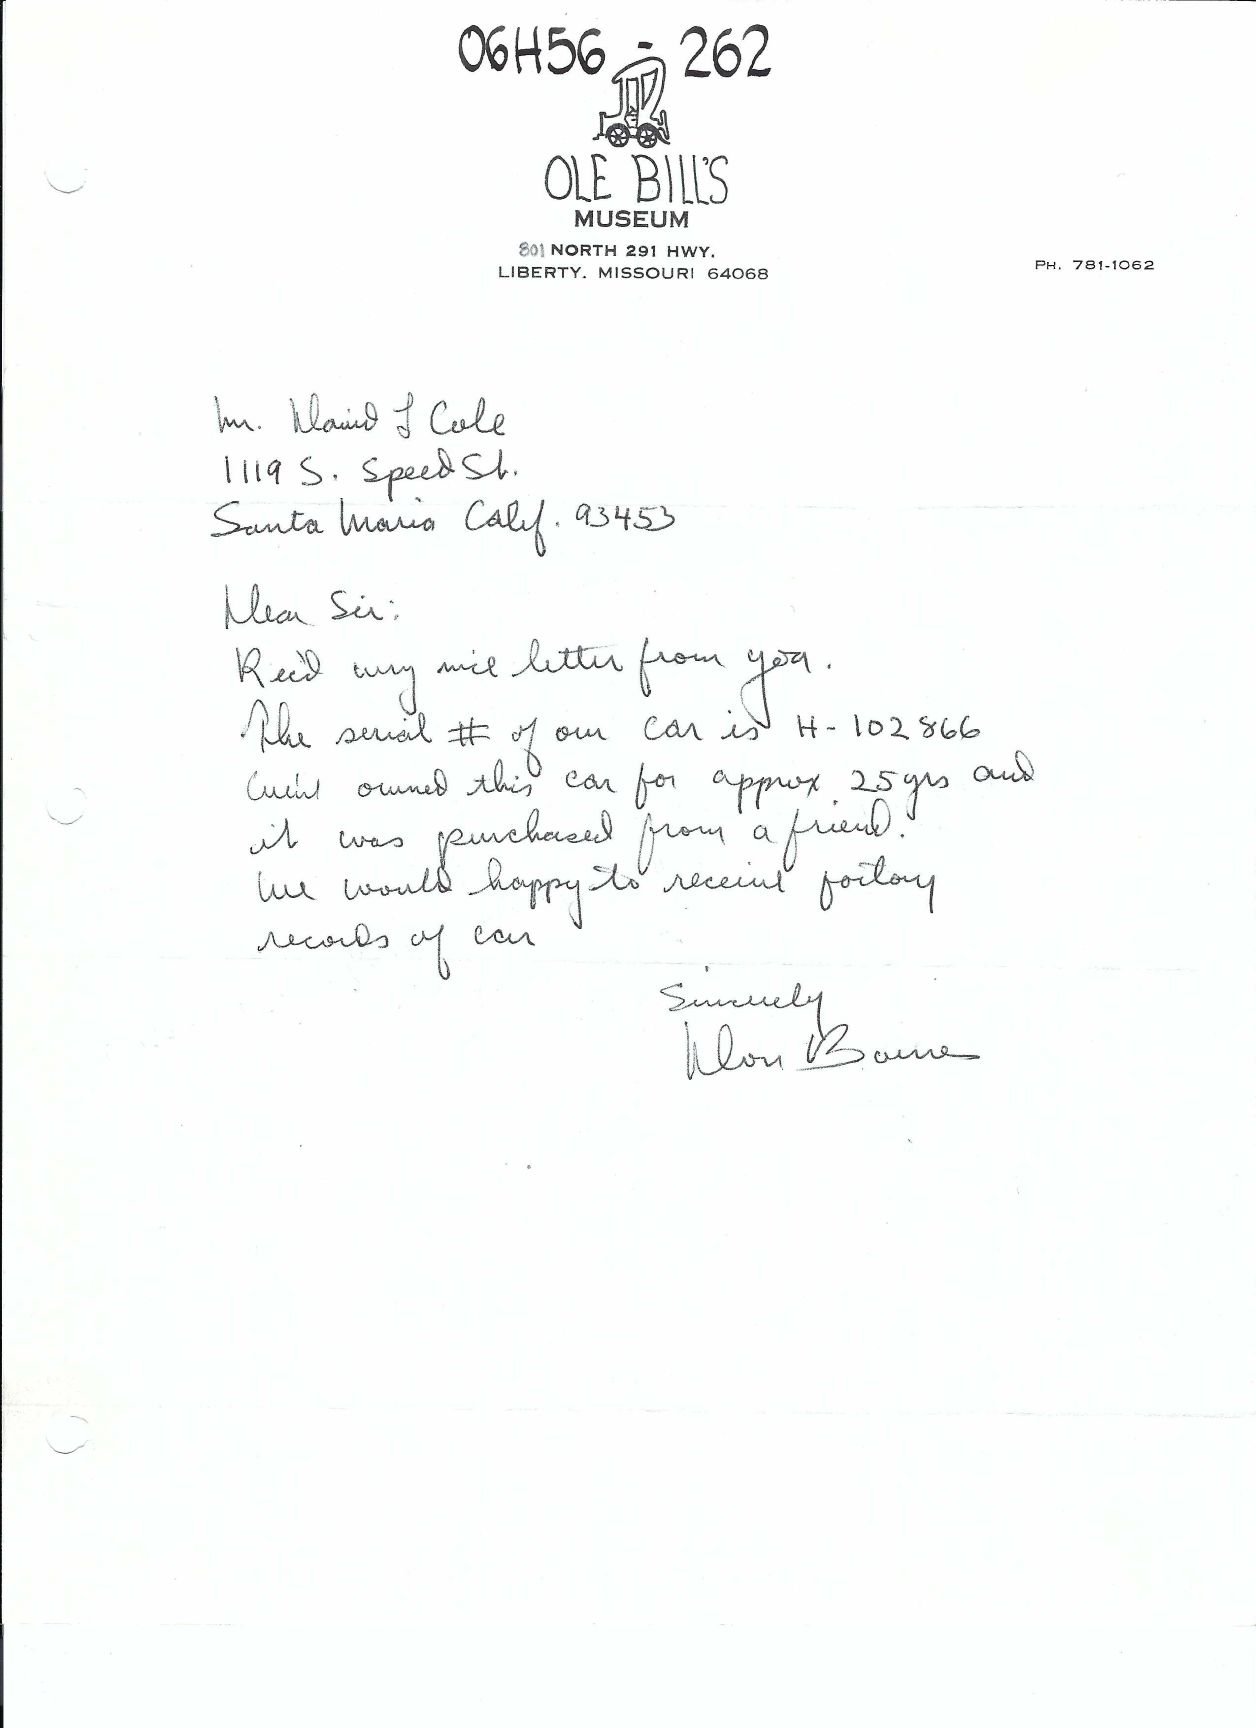 06H56 - 262
OLE BILL'S
MUSEUM
801 NORTH 291 HWY.
LIBERTY, MISSOURI 64068
PH. 781-1062
Mr. David L Cole
1119 S. Speed St.
Santa Maria Calif. 93453
Dear Sir:
Rec'd very nice letter from you.
The serial # of our car is H-102866
We've owned this car for approx. 25 yrs and
it was purchased from a friend.
We would happy to receive factory
records of car
Sincerely
Don